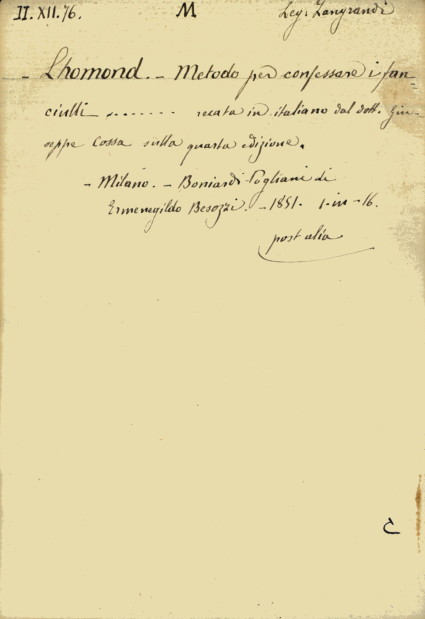 II. XII. 76. M Leg. Zangrandi
- Lhomond. - Metodo per confessare i fan=
ciulli ........ recata in italiano dal dott. Giu=
seppe Cossa sulla quarta edizione.
- Milano. - Boniardi-Pogliani di
Ermenegildo Besozzi. - 1851. 1-in-16.
post alia